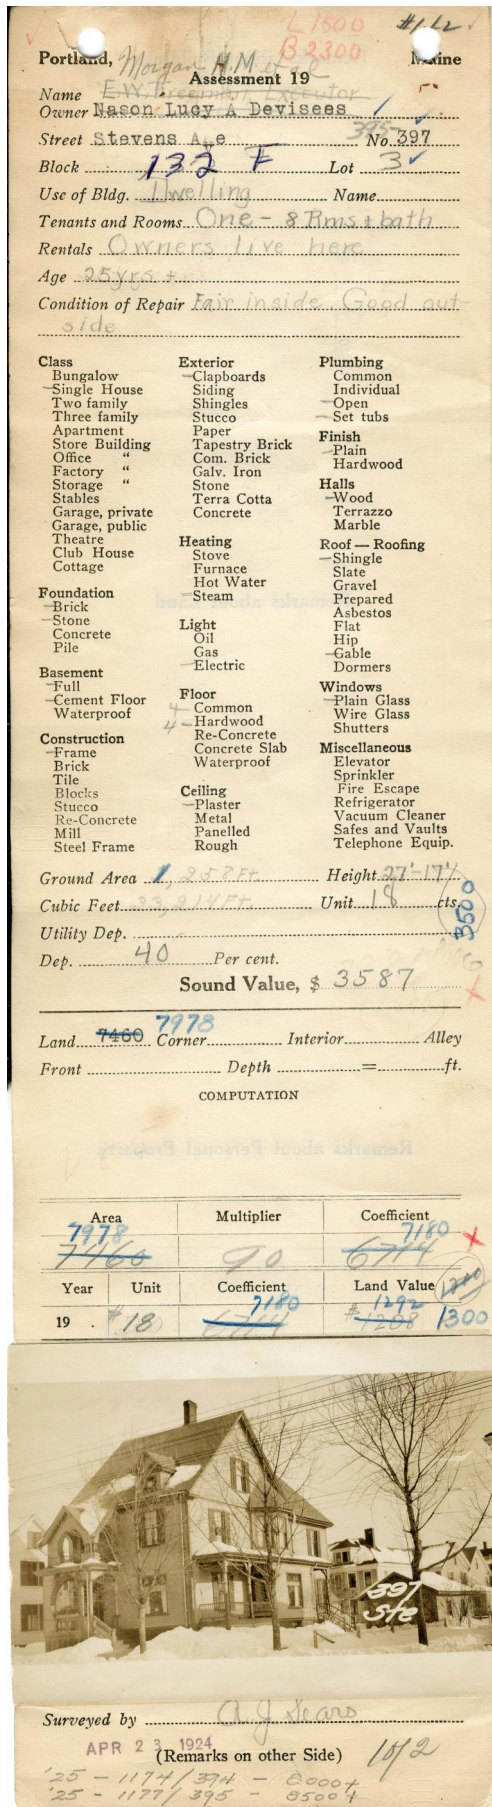 L 1500
B 2300
#1.12
Portland, Maine
Morgan H.M. et al
Assessment 19
Name E.W. Freeman Executor
Owner Nason Lucy A Devisees
Street Stevens Ave 395 No. 397
Block 132 F Lot 3
Use of Bldg. Dwelling Name
Tenants and Rooms One - 8 Rms + bath
Rentals Owners live here
Age 25 yrs +
Condition of Repair Fair inside. Good out
side
Class
Bungalow
Single House
Two family
Three family
Apartment
Store Building
Office "
Factory "
Storage "
Stables
Garage, private
Garage, public
Theatre
Club House
Cottage
Foundation
Brick
Stone
Concrete
Pile
Basement
Full
Cement Floor
Waterproof
Construction
Frame
Brick
Tile
Blocks
Stucco
Re-Concrete
Mill
Steel Frame
Exterior
Clapboards
Siding
Shingles
Stucco
Paper
Tapestry Brick
Com. Brick
Galv. Iron
Stone
Terra Cotta
Concrete
Heating
Stove
Furnace
Hot Water
Steam
Light
Oil
Gas
Electric
Floor
4 Common
4 Hardwood
Re-Concrete
Concrete Slab
Waterproof
Ceiling
Plaster
Metal
Panelled
Rough
Plumbing
Common
Individual
Open
Set tubs
Finish
Plain
Hardwood
Halls
Wood
Terrazzo
Marble
Roof — Roofing
Shingle
Slate
Gravel
Prepared
Asbestos
Flat
Hip
Gable
Dormers
Windows
Plain Glass
Wire Glass
Shutters
Miscellaneous
Elevator
Sprinkler
Fire Escape
Refrigerator
Vacuum Cleaner
Safes and Vaults
Telephone Equip.
Ground Area 1,258 Ft. Height 27'-17'
Cubic Feet 33,214 Ft. Unit 18 cts.
3500
Utility Dep.
Dep. 40 Per cent.
Sound Value, $ 3587
7978
Land 7460 Corner Interior Alley
Front Depth = ft.
COMPUTATION
Area Multiplier Coefficient
7978 7180
7460 90 6714
Year Unit Coefficient Land Value
7180 1292
19 . $18 6714 $1208 1300
397
Ste
Surveyed by A J Sears
APR 23 1924
(Remarks on other Side) 1 of 2
'25 - 1174/394 - 8000+
'25 - 1177/395 - 8500+